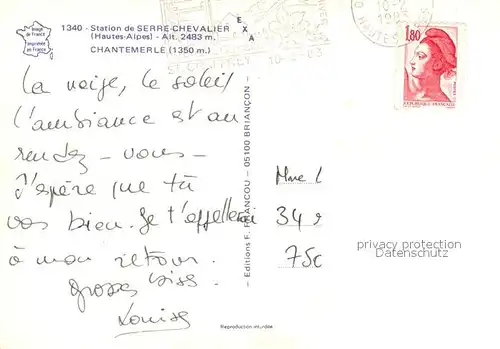 Image
de France
Imprimée
en France
1340 - Station de SERRE-CHEVALIER
(Hautes-Alpes) - Alt. 2483 m.
CHANTEMERLE (1350 m.)
E
X
A
10-2
1,80
REPUBLIQUE FRANCAISE
La neige, le soleil
l'ambiance est au
rendez-vous-
J'espère que tu
vas bien. Je t'appellerai
à mon retour.
Louise
- Editions F. FRANCOU - 05100 BRIANÇON -
Mme L
34
75
privacy protection
Datenschutz
Reproduction interdite